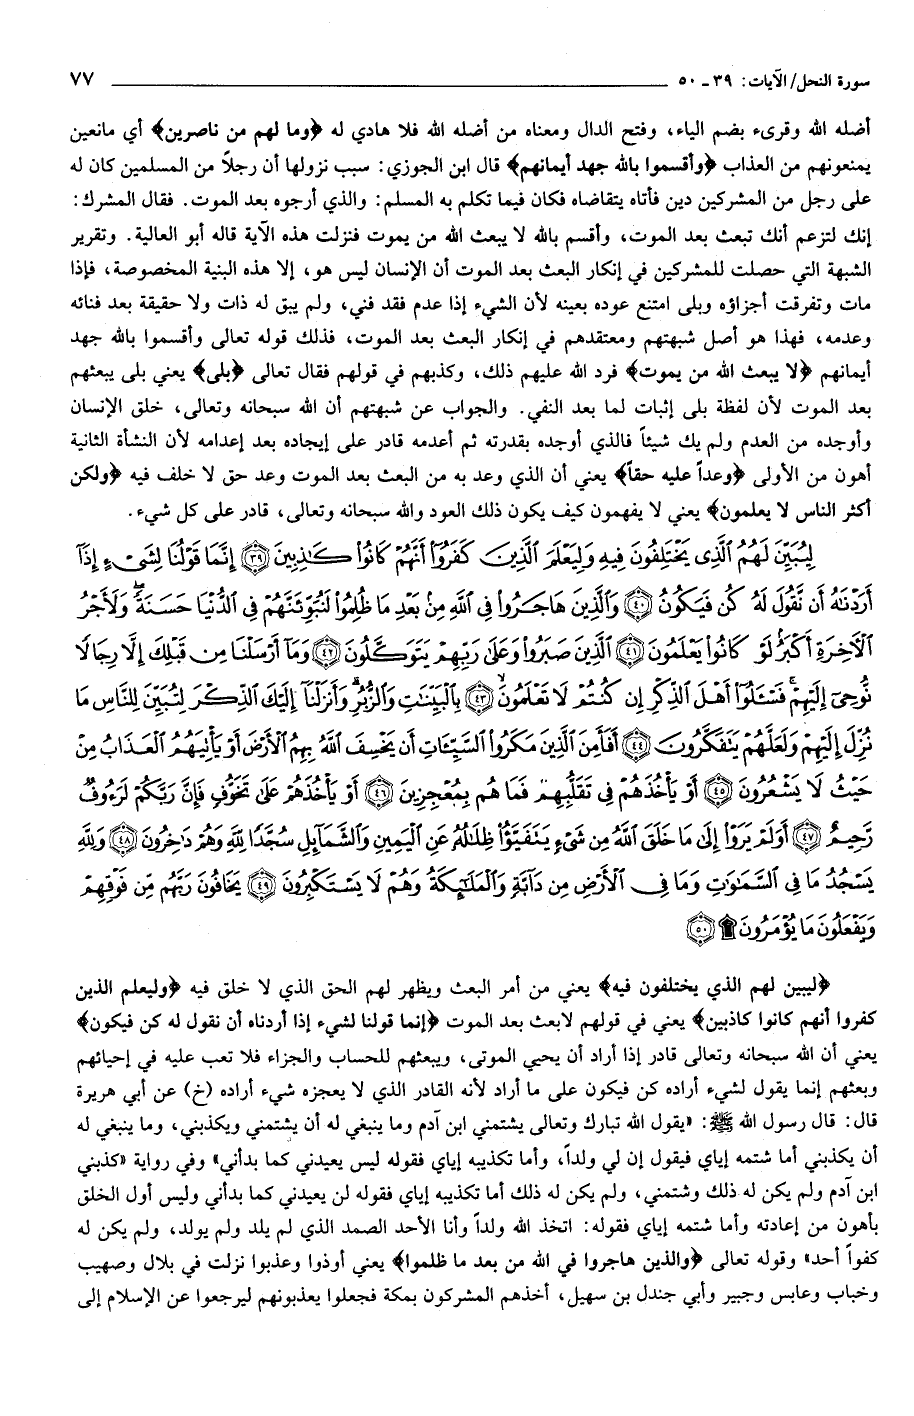 سورة النحل/ الآيات: ٣٩ - ٥٠ ٧٧
أضله الله وقرىء بضم الياء، وفتح الدال ومعناه من أضله الله فلا هادي له ﴿وما لهم من ناصرين﴾ أي مانعين
يمنعونهم من العذاب ﴿وأقسموا بالله جهد أيمانهم﴾ قال ابن الجوزي: سبب نزولها أن رجلاً من المسلمين كان له
على رجل من المشركين دين فأتاه يتقاضاه فكان فيما تكلم به المسلم: والذي أرجوه بعد الموت. فقال المشرك:
إنك لتزعم أنك تبعث بعد الموت، وأقسم بالله لا يبعث الله من يموت فنزلت هذه الآية قاله أبو العالية. وتقرير
الشبهة التي حصلت للمشركين في إنكار البعث بعد الموت أن الإنسان ليس هو، إلا هذه البنية المخصوصة، فإذا
مات وتفرقت أجزاؤه وبلى امتنع عوده بعينه لأن الشيء إذا عدم فقد فني، ولم يبق له ذات ولا حقيقة بعد فنائه
وعدمه، فهذا هو أصل شبهتهم ومعتقدهم في إنكار البعث بعد الموت، فذلك قوله تعالى وأقسموا بالله جهد
أيمانهم ﴿لا يبعث الله من يموت﴾ فرد الله عليهم ذلك، وكذبهم في قولهم فقال تعالى ﴿بلى﴾ يعني بلى يبعثهم
بعد الموت لأن لفظة بلى إثبات لما بعد النفي. والجواب عن شبهتهم أن الله سبحانه وتعالى، خلق الإنسان
وأوجده من العدم ولم يك شيئاً فالذي أوجده بقدرته ثم أعدمه قادر على إيجاده بعد إعدامه لأن النشأة الثانية
أهون من الأولى ﴿وعداً عليه حقاً﴾ يعني أن الذي وعد به من البعث بعد الموت وعد حق لا خلف فيه ﴿ولكن
أكثر الناس لا يعلمون﴾ يعني لا يفهمون كيف يكون ذلك العود والله سبحانه وتعالى، قادر على كل شيء.
لِيُبَيِّنَ لَهُمُ ٱلَّذِى يَخْتَلِفُونَ فِيهِ وَلِيَعْلَمَ ٱلَّذِينَ كَفَرُوٓا۟ أَنَّهُمْ كَانُوا۟ كَـٰذِبِينَ ﴿٣٩﴾ إِنَّمَا قَوْلُنَا لِشَىْءٍ إِذَآ
أَرَدْنَـٰهُ أَن نَّقُولَ لَهُۥ كُن فَيَكُونُ ﴿٤٠﴾ وَٱلَّذِينَ هَاجَرُوا۟ فِى ٱللَّهِ مِنۢ بَعْدِ مَا ظُلِمُوا۟ لَنُبَوِّئَنَّهُمْ فِى ٱلدُّنْيَا حَسَنَةً ۖ وَلَأَجْرُ
ٱلْـَٔاخِرَةِ أَكْبَرُ ۚ لَوْ كَانُوا۟ يَعْلَمُونَ ﴿٤١﴾ ٱلَّذِينَ صَبَرُوا۟ وَعَلَىٰ رَبِّهِمْ يَتَوَكَّلُونَ ﴿٤٢﴾ وَمَآ أَرْسَلْنَا مِن قَبْلِكَ إِلَّا رِجَالًا
نُّوحِىٓ إِلَيْهِمْ ۚ فَسْـَٔلُوٓا۟ أَهْلَ ٱلذِّكْرِ إِن كُنتُمْ لَا تَعْلَمُونَ ﴿٤٣﴾ بِٱلْبَيِّنَـٰتِ وَٱلزُّبُرِ ۗ وَأَنزَلْنَآ إِلَيْكَ ٱلذِّكْرَ لِتُبَيِّنَ لِلنَّاسِ مَا
نُزِّلَ إِلَيْهِمْ وَلَعَلَّهُمْ يَتَفَكَّرُونَ ﴿٤٤﴾ أَفَأَمِنَ ٱلَّذِينَ مَكَرُوا۟ ٱلسَّيِّـَٔاتِ أَن يَخْسِفَ ٱللَّهُ بِهِمُ ٱلْأَرْضَ أَوْ يَأْتِيَهُمُ ٱلْعَذَابُ مِنْ
حَيْثُ لَا يَشْعُرُونَ ﴿٤٥﴾ أَوْ يَأْخُذَهُمْ فِى تَقَلُّبِهِمْ فَمَا هُم بِمُعْجِزِينَ ﴿٤٦﴾ أَوْ يَأْخُذَهُمْ عَلَىٰ تَخَوُّفٍ فَإِنَّ رَبَّكُمْ لَرَءُوفٌ
رَّحِيمٌ ﴿٤٧﴾ أَوَلَمْ يَرَوْا۟ إِلَىٰ مَا خَلَقَ ٱللَّهُ مِن شَىْءٍ يَتَفَيَّؤُا۟ ظِلَـٰلُهُۥ عَنِ ٱلْيَمِينِ وَٱلشَّمَآئِلِ سُجَّدًا لِّلَّهِ وَهُمْ دَٰخِرُونَ ﴿٤٨﴾ وَلِلَّهِ
يَسْجُدُ مَا فِى ٱلسَّمَـٰوَٰتِ وَمَا فِى ٱلْأَرْضِ مِن دَآبَّةٍ وَٱلْمَلَـٰٓئِكَةُ وَهُمْ لَا يَسْتَكْبِرُونَ ﴿٤٩﴾ يَخَافُونَ رَبَّهُم مِّن فَوْقِهِمْ
وَيَفْعَلُونَ مَا يُؤْمَرُونَ ۩ ﴿٥٠﴾
﴿ليبين لهم الذي يختلفون فيه﴾ يعني من أمر البعث ويظهر لهم الحق الذي لا خلق فيه ﴿وليعلم الذين
كفروا أنهم كانوا كاذبين﴾ يعني في قولهم لابعث بعد الموت ﴿إنما قولنا لشيء إذا أردناه أن نقول له كن فيكون﴾
يعني أن الله سبحانه وتعالى قادر إذا أراد أن يحيي الموتى، ويبعثهم للحساب والجزاء فلا تعب عليه في إحيائهم
وبعثهم إنما يقول لشيء أراده كن فيكون على ما أراد لأنه القادر الذي لا يعجزه شيء أراده (خ) عن أبي هريرة
قال: قال رسول الله ﷺ: «يقول الله تبارك وتعالى يشتمني ابن آدم وما ينبغي له أن يشتمني ويكذبني، وما ينبغي له
أن يكذبني أما شتمه إياي فيقول إن لي ولداً، وأما تكذيبه إياي فقوله ليس يعيدني كما بدأني» وفي رواية «كذبني
ابن آدم ولم يكن له ذلك وشتمني، ولم يكن له ذلك أما تكذيبه إياي فقوله لن يعيدني كما بدأني وليس أول الخلق
بأهون من إعادته وأما شتمه إياي فقوله: اتخذ الله ولداً وأنا الأحد الصمد الذي لم يلد ولم يولد، ولم يكن له
كفواً أحد» وقوله تعالى ﴿والذين هاجروا في الله من بعد ما ظلموا﴾ يعني أوذوا وعذبوا نزلت في بلال وصهيب
وخباب وعابس وجبير وأبي جندل بن سهيل، أخذهم المشركون بمكة فجعلوا يعذبونهم ليرجعوا عن الإسلام إلى